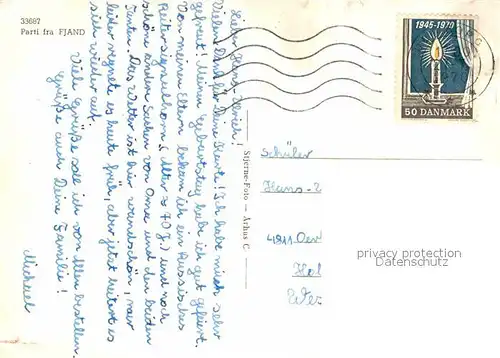 33687
Parti fra FJAND
Lieber Hans-Ulrich!
Vielen Dank für Deine Karte! Ich habe mich sehr
gefreut. Meinen Geburtstag habe ich gut gefeiert.
Von meinen Eltern bekam ich ein Russisches
(Alter ≈ 70 J.) und noch
schöne andere Sachen von Oma und den beiden
Tanten. Das Wetter ist hier wunderschön, nur
leider regnete es heute früh, aber jetzt
sich wieder auf.
Viele Grüße soll ich von allen bestellen.
Grüße auch Deine Familie!
Michael
Stjerne-Foto – Århus C.
1945-1970
50 DANMARK
Schüler
Hans-U
Hol
privacy protection
Datenschutz